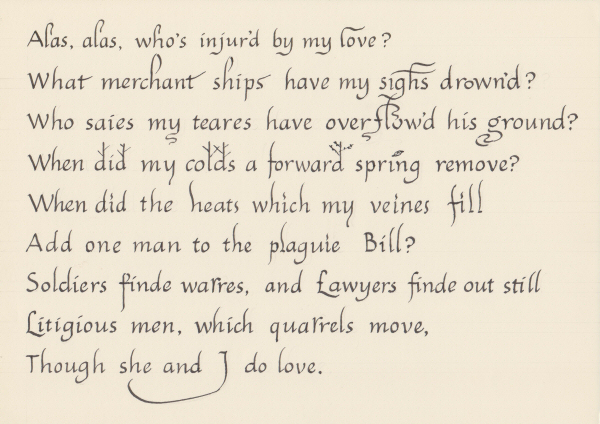 Alas, alas, who's injur'd by my love?
What merchant ships have my sighs drown'd?
Who saies my teares have overflow'd his ground?
When did my colds a forward spring remove?
When did the heats which my veines fill
Add one man to the plaguie Bill?
Soldiers finde warres, and Lawyers finde out still
Litigious men, which quarrels move,
Though she and I do love.